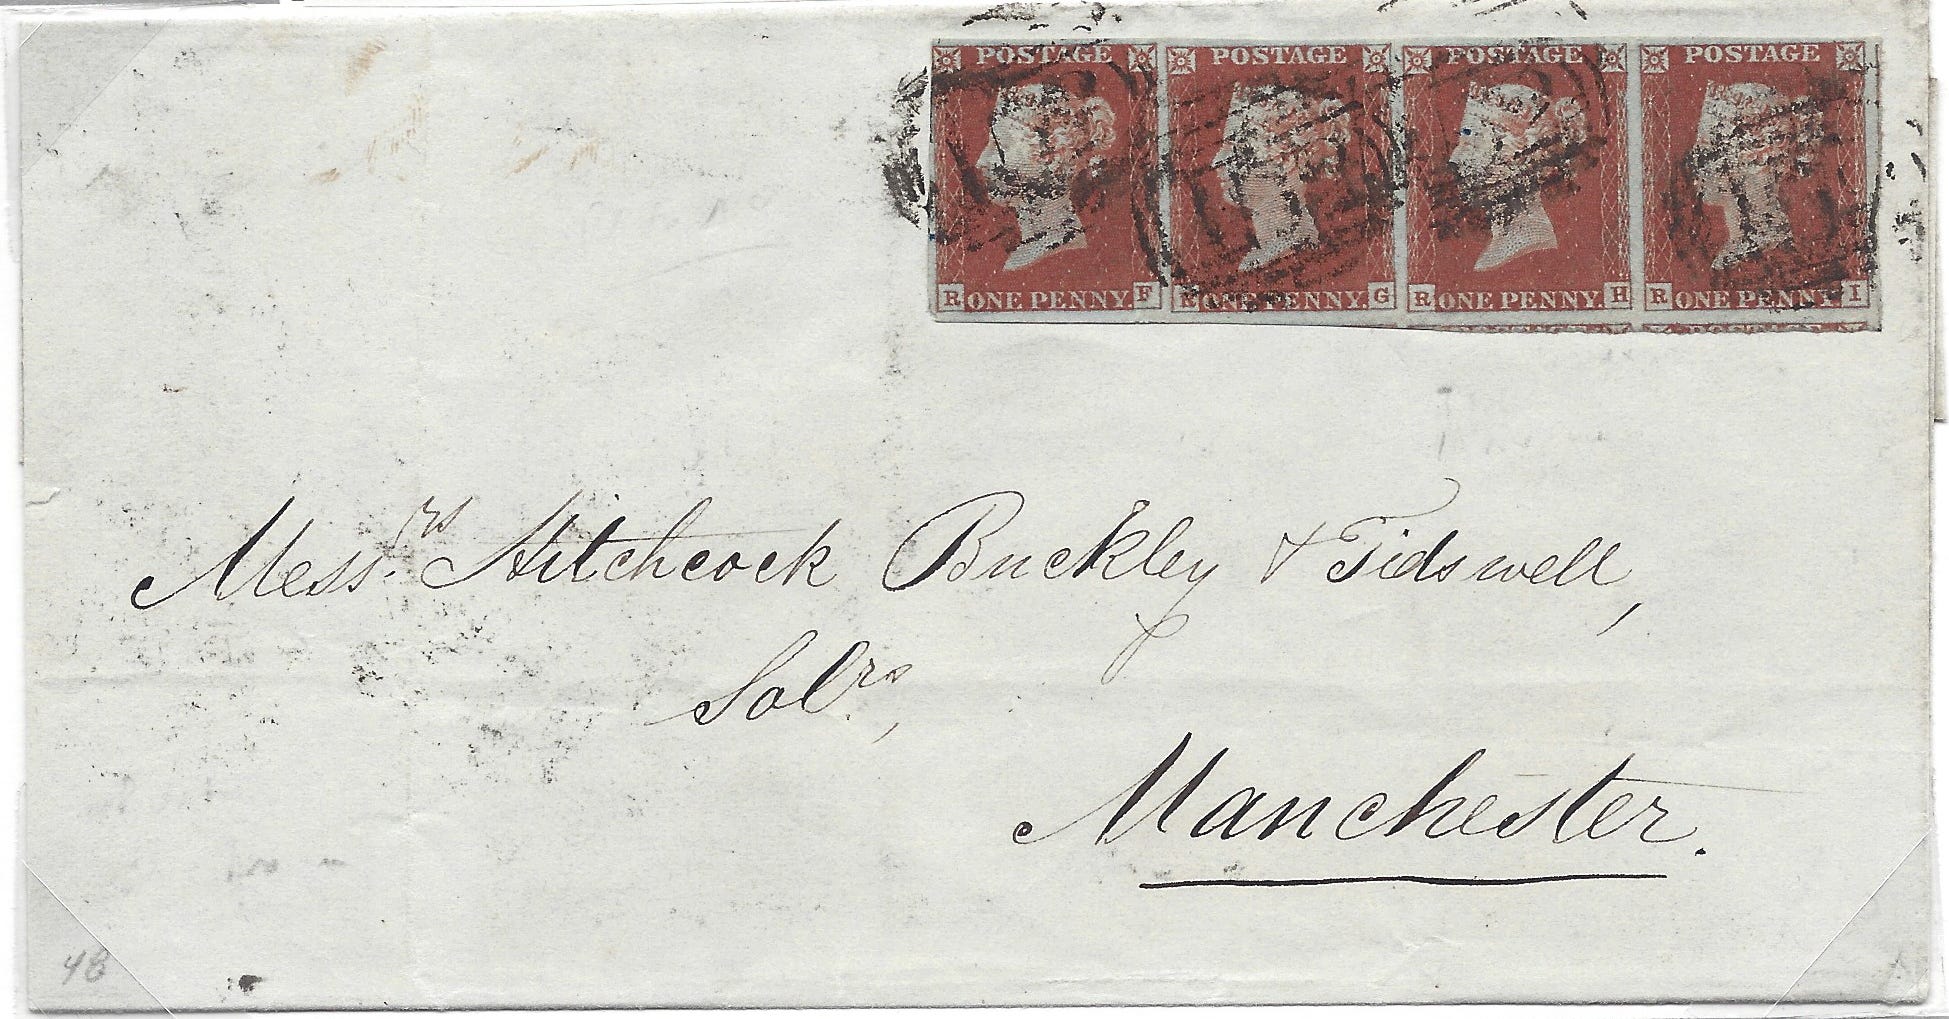 POSTAGE POSTAGE POSTAGE POSTAGE
R ONE PENNY. F R ONE PENNY. G R ONE PENNY. H R ONE PENNY I
Messrs. Hitchcock Buckley & Tidswell,
Solrs.,
Manchester.
48